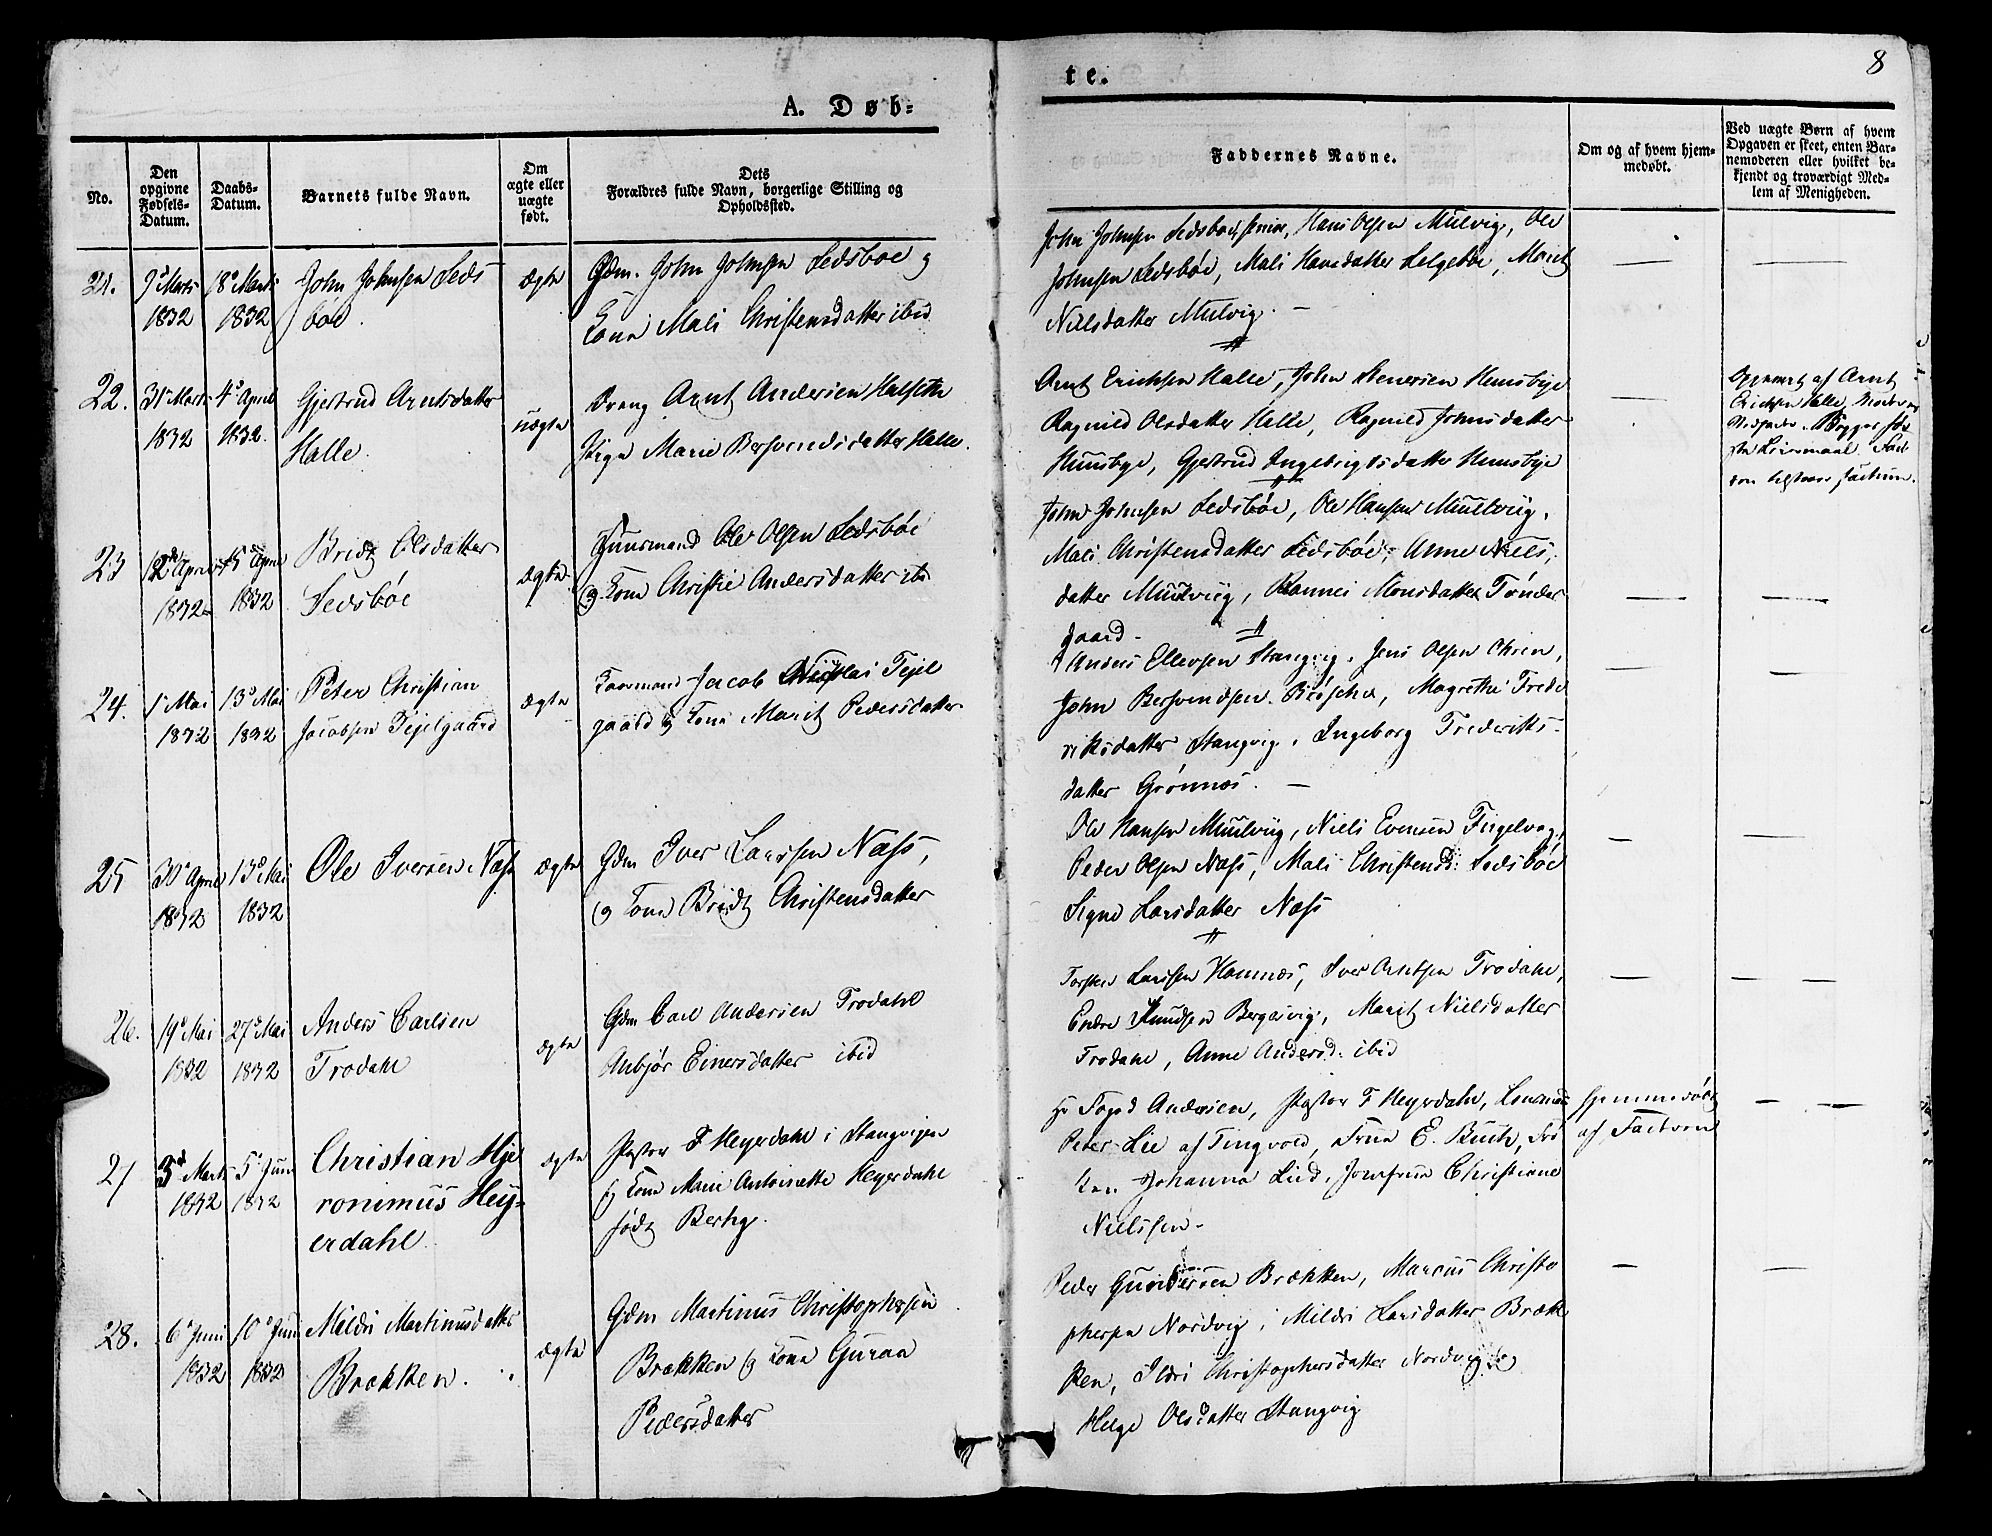 8
A. Døb-
te.
No.
Den opgivne Fødsels-Datum.
Daabs-Datum.
Barnets fulde Navn.
Om ægte eller uægte født.
Dets Forældres fulde Navn, borgerlige Stilling og Opholdsted.
Faddernes Navne.
Om og af hvem hjem-
medøbt.
Ved uægte Børn af hvem
Opgaven er skeet, enten Bar-
nemoderen eller hvilket be-
kjendt og troværdigt Med-
lem af Menigheden.
21.
9de Marts
1832
18de Marts
1832
John Johnsen Seds
boe.
ægte
Gdm. John Johnsen Sedsboe og
Kone Mali Christensdatter ibid
John Johnsen Sedsboe, senior, Hans Olsen Mulvig, Ole
Johnsen Sedsbøe, Mali Hansdatter, Marit
Nielsdatter Mulvig. —
22.
31 Marts
1832
4de April
1832.
Gjertrud Arntsdatter
Halle.
uægte
Dreng Arnt Andersen Halseth
Pige Marie Bersvendsdatter Halle.
Arnt Erichsen Halle, John Stenersen Humsbye
Ragnild Olsdatter Halle, Ragnild Johnsdatter
Humsbye, Gjertrud Ingebrigtsdatter Humsbye
af Arnt
Erichsen Halle, Moder og
Begges før
ste Leiermaal. Fad
ren tilstaar factum.
23
12 April
1832
15 April
1832
Bridt Olsdatter
Sedsbøe
ægte
Huusmand Ole Olsen Sedsbøe
og Kone Christie Andersdatter ibd
John Johnsen Sedsbøe, Ole Hansen Muulviig,
Mali Christensdatter Sedsbøe, Anne Niels,
datter Muulviig, Rannei Monsdatter Tønder
gaard —
24.
1 Mai
1832
13de Mai
1832
Peter Christian
Jacobsen Tejelgaard
ægte
Jacob Nicolai Tejel
gaard og Kone Marit Pedersdatter
Anders Ellevsen Stangvig, Jens Olsen Ohren,
John Bersvendsen, Magrethe Frede
riksdatter Stangvig, Ingeborg Frederiks-
datter Grønnæs. —
25
30 April
1832
13de Mai
1832
Ole Iversen Næss
ægte
Gdm Iver Larssen Næss,
og Kone Bridt Christensdatter
Ole Hansen Muulviig, Niels Evensen Fugelvog,
Peder Olsen Næss, Mali Christensd: Sedsbøe
Signe Larsdatter Næss
26.
19de Mai
1832
27de Mai
1832
Anders Carlsen
Trodahl
ægte
Gdm Carl Andersen Trodahl
Anbjør Einersdatter ibid
Torsten Larssen Hamnæs, Iver Arntsen Trodahl,
Endre Knudsen Bergsvig, Marit Nielsdatter
Trodahl, Anne Andersd: ibid
27
3de Marts
1832
5 Juni
1832
Christian Hje
ronimus Hey-
erdahl.
ægte
Pastor F Heyerdahl i Stangvigen
og Kone Marie Antoinette Heyerdahl
født Bertz.
Hr Foged Andersen, Pastor F Heyerdahl,
Peter Lie af Tingvold, Frue E. Buch, Frø
ken Johanna Lind, Jomfrue Christiane
Nielssen —
Hjemmedøbt
af Faderen
28.
6de Juni
1832
10de Juni
1832
Mildri Martinusdatter
Brækken.
ægte
Gdm Martinus Christophersen
Brækken og Kone Guraa
Pedersdatter
Peder Gundersen Brækken, Marcus Christo
phersen Nordvig, Mildri Larsdatter Bræk
ken, Ildri Christophersdatter Nordvig og
Helge Olsdatter Stangvig